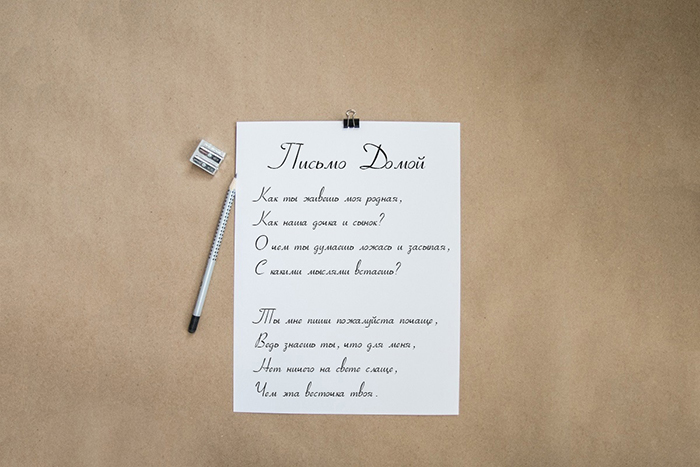 Письмо Домой
Как ты живешь моя родная,
Как наша дочка и сынок?
О чем ты думаешь ложась и засыпая,
С какими мыслями встаешь?
Ты мне пиши пожалуйста почаще,
Ведь знаешь ты, что для меня,
Нет ничего на свете слаще,
Чем эта весточка твоя.